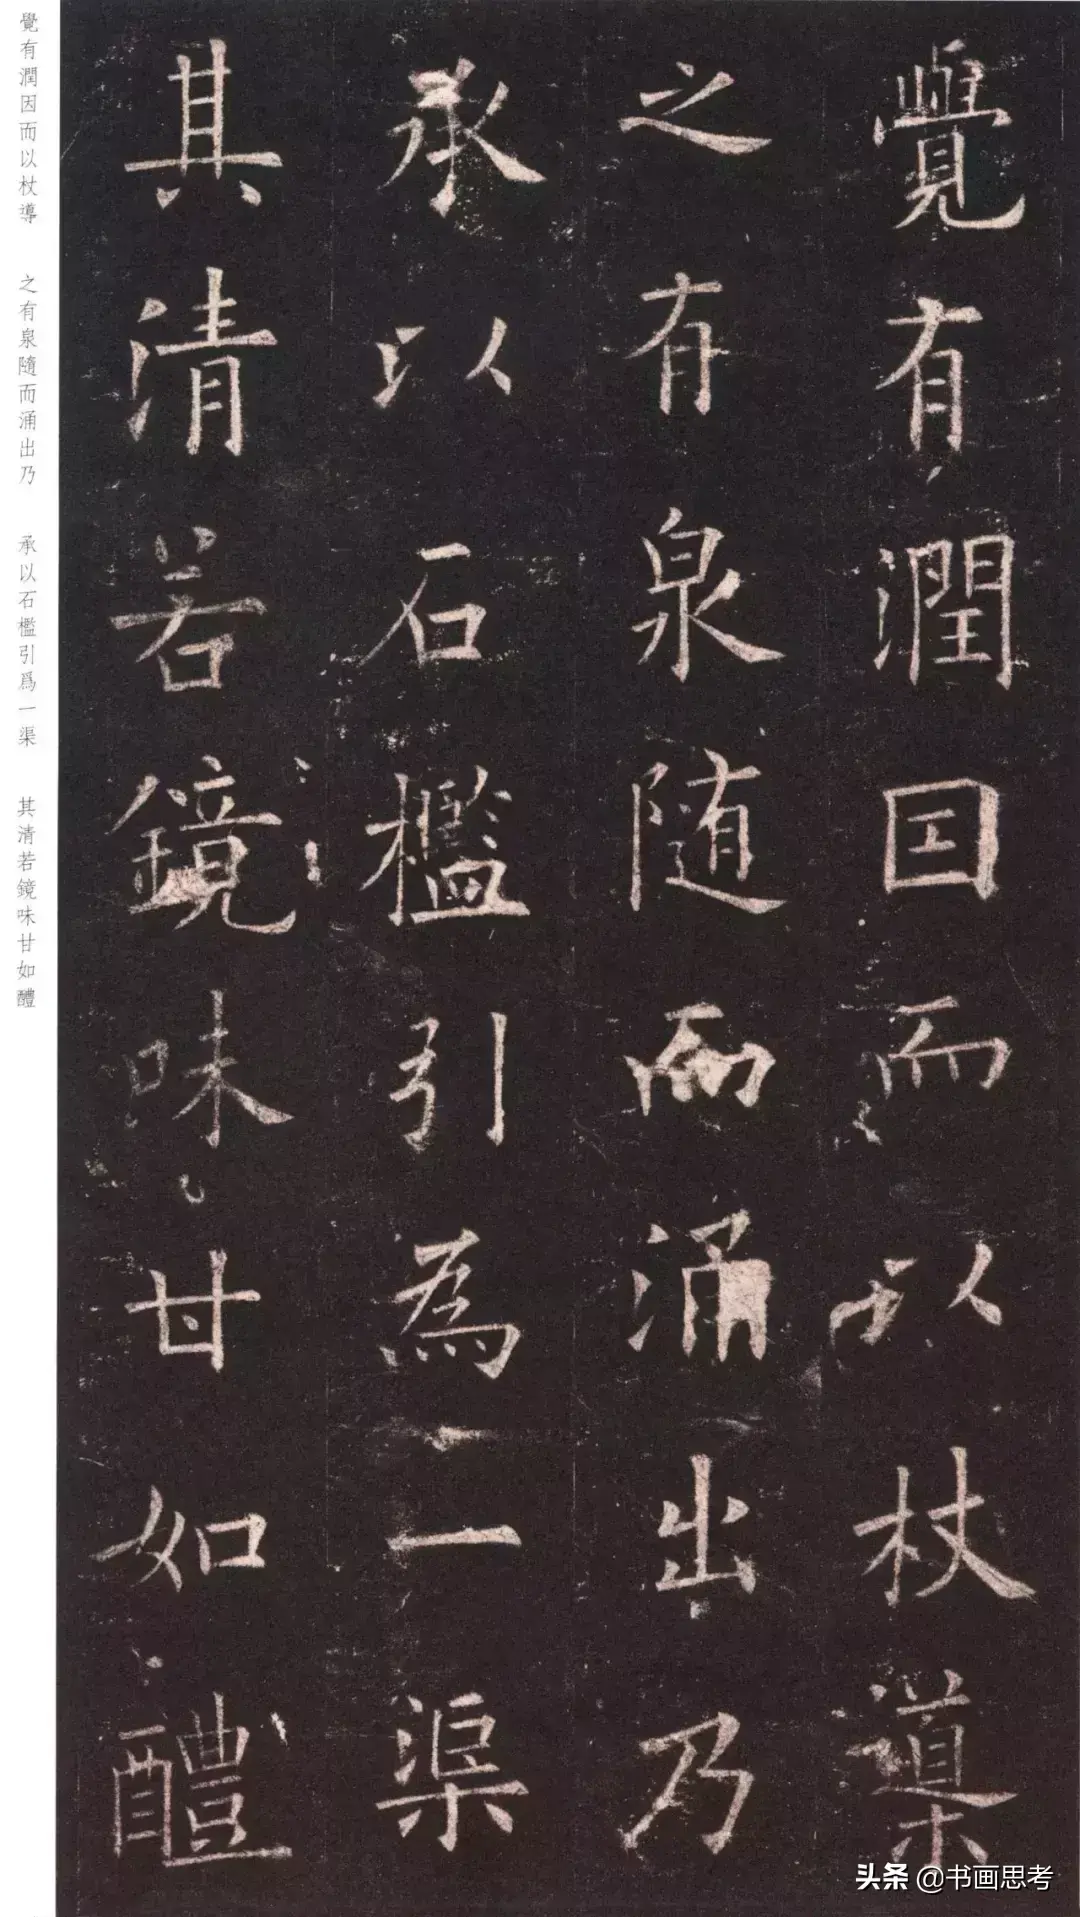 覺有潤因而以杖導
之有泉隨而涌出乃
承以石檻引為一渠
其清若鏡味甘如醴
覺有潤因而以杖導 之有泉隨而涌出乃 承以石檻引爲一渠 其清若鏡味甘如醴
头条 @书画思考